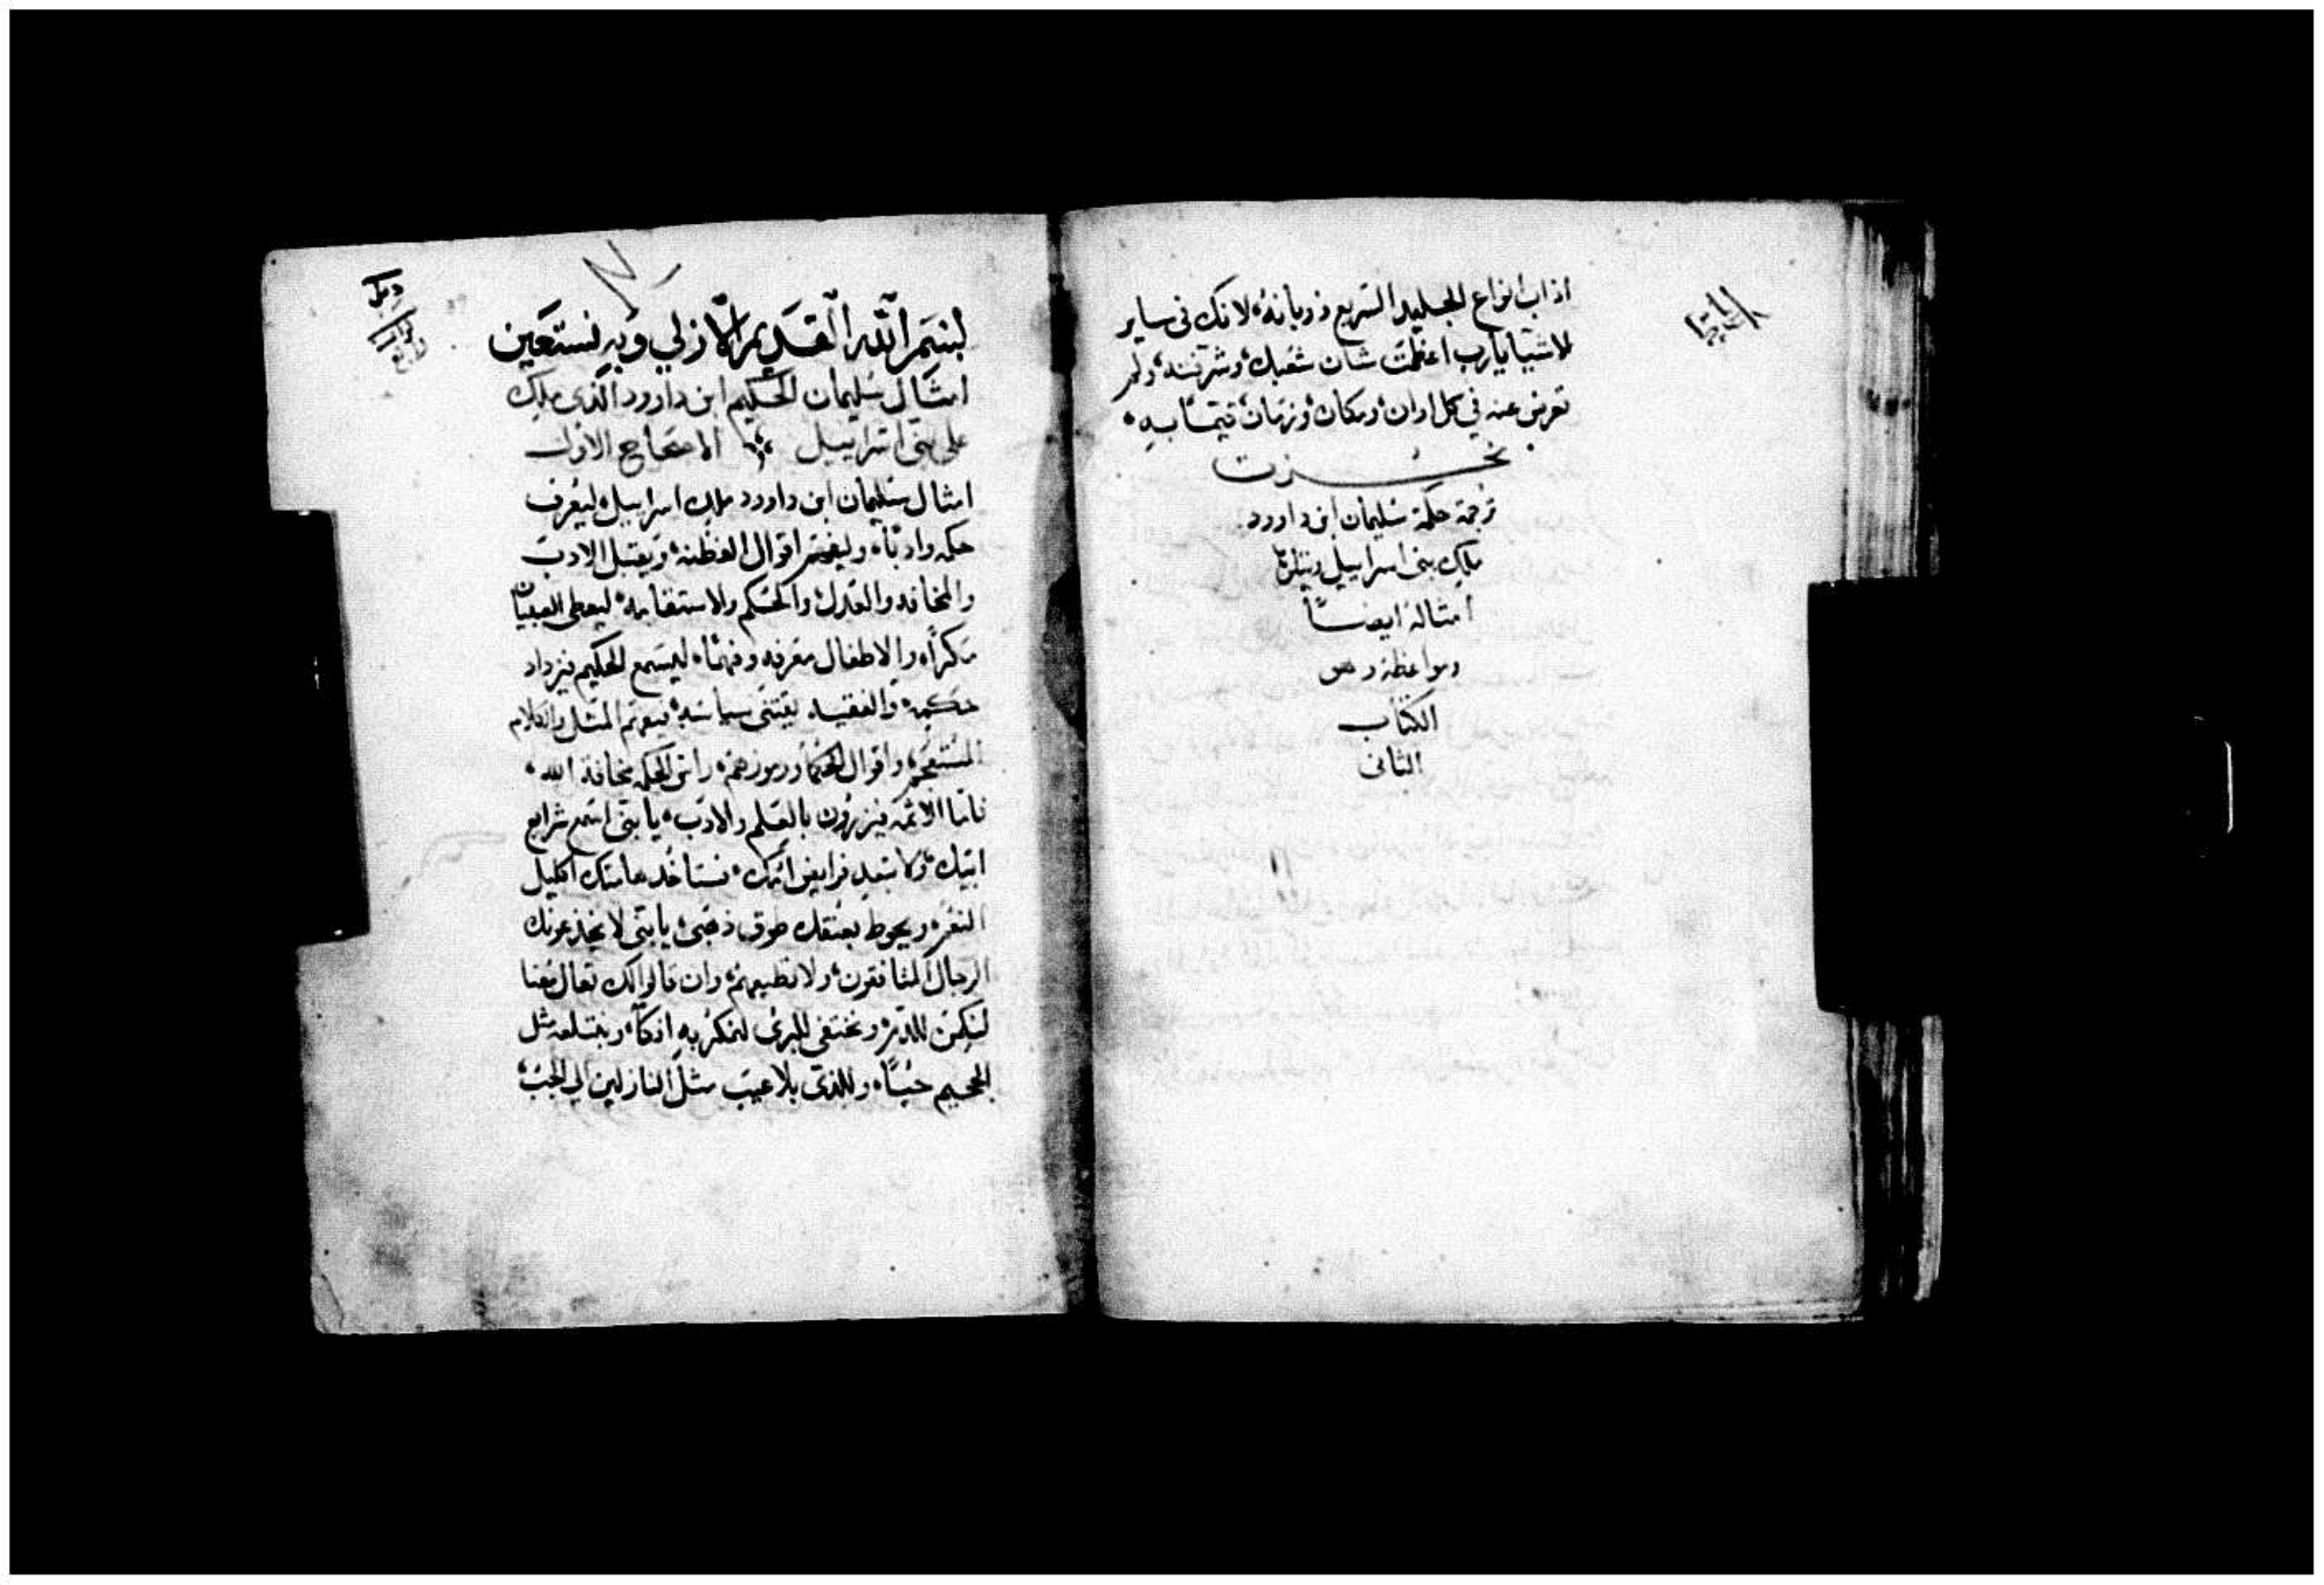 اذاب انواع الجليد السريع ذوبانه لانك فى ساير
الاشيا يارب اعظمت شان شعبك وشرفته ولم
تعرض عنه في كل اوان ومكان وزمان
نجزت
ترجمة حكمة سليمان ابن داوود
ملك بنى اسراييل ويتلوها
امثاله ايضاً
ومواعظه وهى
الكتاب
الثانى
بسم الله القديم الازلي وبه نستعين
امثال سليمان الحكيم ابن داوود الذى ملك
على بني اسراييل الاصحاح الاول
امثال سليمان ابن داوود ملك اسراييل ليعرف
حكمه وادباً وليفهم اقوال الفطنه ويقبل الادب
والمخافه والعدل والحكم والاستقامه ليعطى الصبيان
مكراً والاطفال معرفه وفهماً ليسمع الحكيم فيزداد
حكمه والفقيه يقتنى سياسه فيفهم المثل والكلام
المستعجم واقوال الحكما ورموزهم راس الحكمه مخافة الله
فاما الاثمه فيزرون بالعلم والادب يا بني اسمع شرايع
ابيك ولا تبعد فرايض امك فستاخذ هامتك اكليل
النعم ويحوط بعنقك طوق ذهبى يا بنى لا يخدعونك
الرجال المنافقون ولا تطيعهم وان قالوا لك تعال معنا
لنكمن للدم ونختفى للبرى لنمكر به افكاً ونبتلعه مثل
الجحيم حياً وللذى بلا عيب مثل النازلين الى الجب